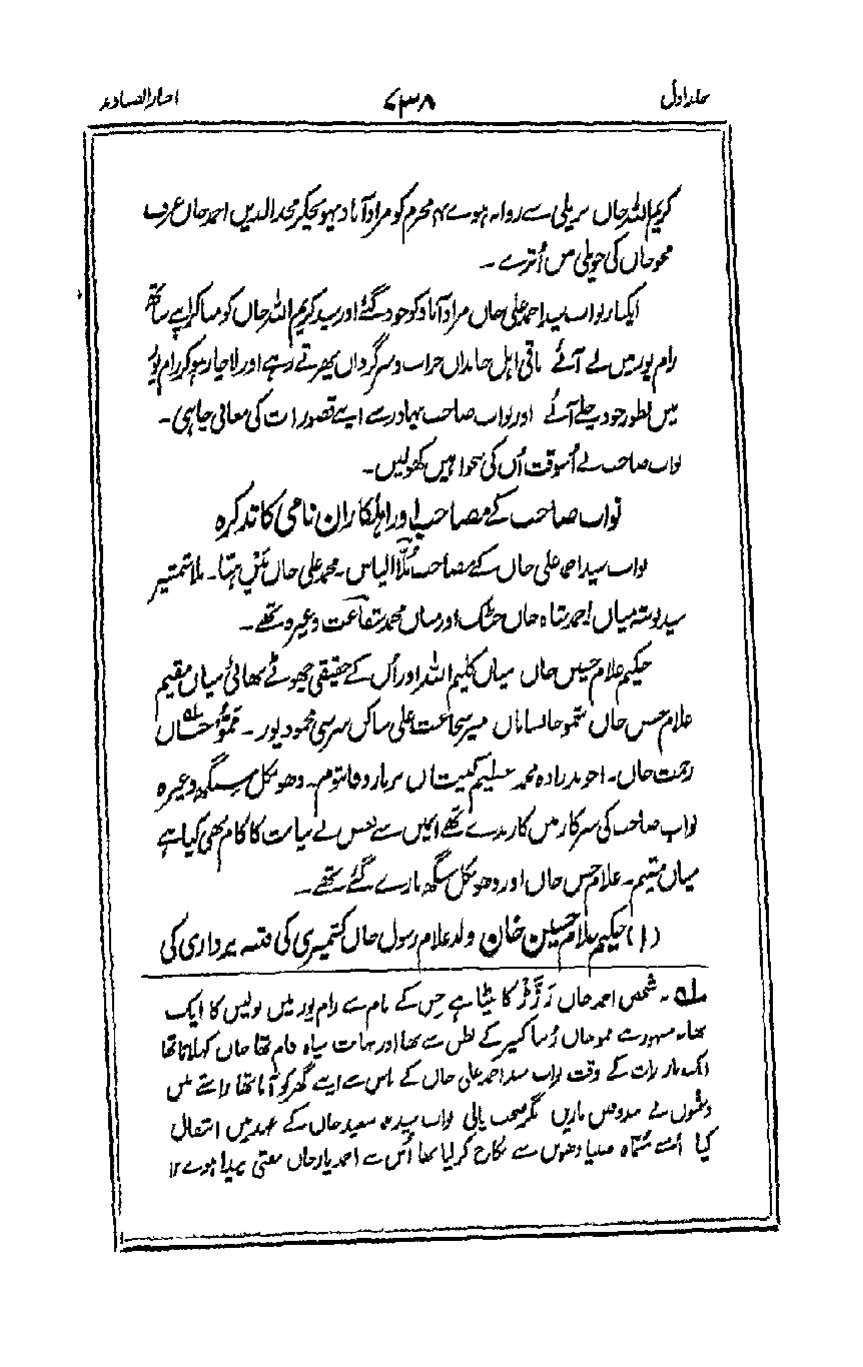 جلد اول ۷۳۸ اخبار الصنادید
کریم اللہ خاں بریلی سے روانہ ہوے ۴ محرم کو مرادآباد پہونچکر مجد الدین احمد خاں عرف
مجو خاں کی حویلی میں اُترے۔
ایکبار نواب سید احمد علی خاں مرادآباد کو خود گئے اور سید کریم اللہ خاں کو مناکر اپنے ساتھ
رام پور میں لے آئے باقی اہل خاندان خراب و سرگرداں پھرتے رہے اور لاچار ہوکر رام پور
میں بطور خود چلے آئے اور نواب صاحب بہادر سے اپنے قصورات کی معافی چاہی۔
نواب صاحب نے اُسوقت اُن کی تنخواہیں کھولیں۔
نواب صاحب کے مصاحب اور اہلکاران نامی کا تذکرہ
نواب سید احمد علی خاں کے مصاحب مُلّا الیاس۔ محمد علی خاں۔ ملا شمشیر
سید بوشہ میاں احمد شاہ خاں خٹک اور میاں محمد شفاعت وغیرہ تھے۔
حکیم غلام حسین خاں میاں کلیم اللہ اور اُن کے حقیقی چھوٹے بھائی میاں مقیم
غلام حسن خاں خانساماں میر شجاعت علی ساکن سرسی محمود پور۔ خاں
رحمت خاں۔ اخوند زادہ محمد سلیم۔ دھونکل سنگھ وغیرہ
نواب صاحب کی سرکار میں کارندے تھے انمیں سے بعض نے نیابت کا کام بھی کیا ہے
میاں مقیم۔ غلام حسن خاں اور دھونکل سنگھ مارے گئے تھے۔
(۱) حکیم غلام حسین خان ولد غلام رسول خاں کشمیری کی فتنہ پردازی کی
۵۱۔ شخص احمد خاں کا بیٹا ہے جس کے نام سے رام پور میں پولیس کا ایک
تھانہ مشہور ہے ممو خاں کے بطن سے تھا اور نہایت سیاہ فام تھا خاں کہلاتا تھا
ایک بار رات کے وقت نواب سید احمد علی خاں کے پاس سے اپنے گھر کو آتا تھا راستے میں
دشمنوں نے بندوقیں ماریں مگر صحت پائی نواب سید محمد سعید خاں کے عہد میں انتقال
کیا اُسنے مسماۃ دھوں سے نکاح کر لیا تھا اُس سے احمد یار خاں مفتی پیدا ہوے ۱۲